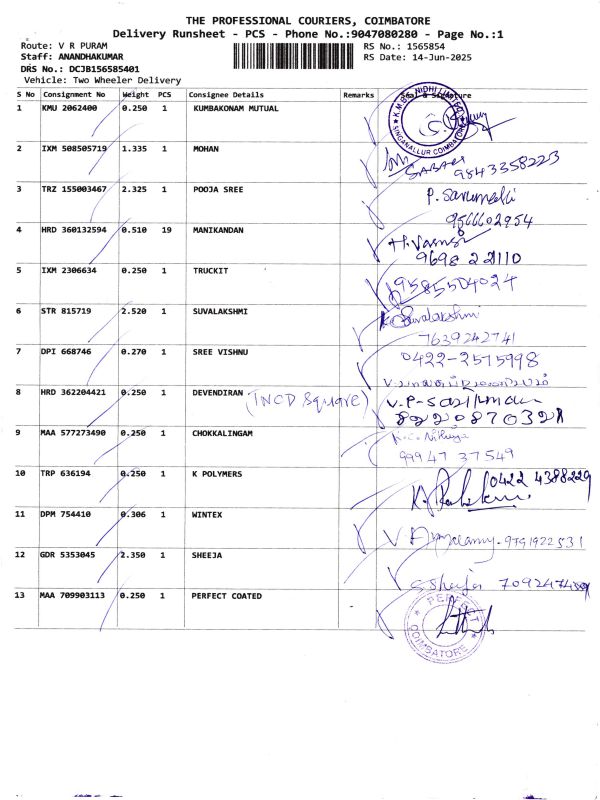 THE PROFESSIONAL COURIERS, COIMBATORE
Delivery Runsheet - PCS - Phone No.:9047080280 - Page No.:1
Route: V R PURAM RS No.: 1565854
Staff: ANANDHAKUMAR RS Date: 14-Jun-2025
DRS No.: DCJB156585401
Vehicle: Two Wheeler Delivery
S No Consignment No Weight PCS Consignee Details Remarks Seal & Signature
1 KMU 2062400 0.250 1 KUMBAKONAM MUTUAL
SINGANALLUR COIMBATORE
2 IXM 508505719 1.335 1 MOHAN
SABARI 9843358223
3 TRZ 155003467 2.325 1 POOJA SREE P.
9566602954
4 HRD 360132594 0.510 19 MANIKANDAN
9698 221110
5 IXM 2306634 0.250 1 TRUCKIT 9585504024
6 STR 815719 2.520 1 SUVALAKSHMI Suvalakshmi
7639242741
7 DPI 668746 0.270 1 SREE VISHNU 0422-2575998
8 HRD 362204421 0.250 1 DEVENDIRAN (TNCD Square) V.P-
8220870328
9 MAA 577273490 0.250 1 CHOKKALINGAM Nithya
99947 37549
10 TRP 636194 0.250 1 K POLYMERS 0422 4388229
11 DPM 754410 0.306 1 WINTEX 9791922531
12 GDR 5353045 2.350 1 SHEEJA S. Sheeja
13 MAA 709903113 0.250 1 PERFECT COATED PERFECT
COIMBATORE